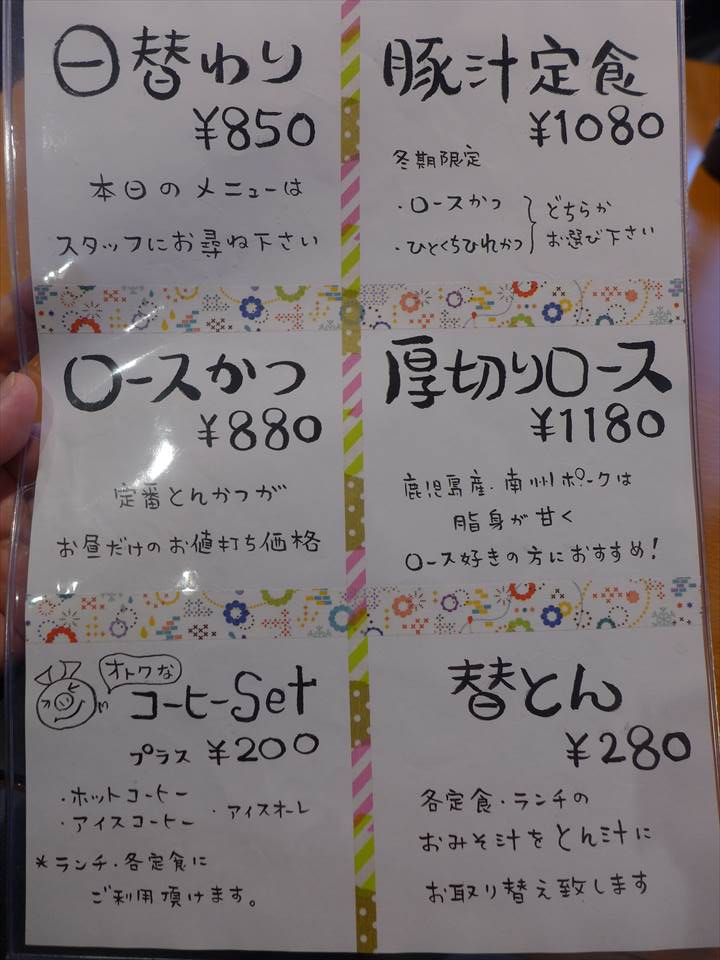 日替わり
¥850
本日のメニューは
スタッフにお尋ね下さい
豚汁定食
¥1080
冬期限定
・ロースかつ
・ひとくちひれかつ
どちらか
お選び下さい
ロースかつ
¥880
定番とんかつが
お昼だけのお値打ち価格
厚切りロース
¥1180
鹿児島産・南州ポークは
脂身が甘く
ロース好きの方におすすめ!
オトクな
コーヒーSet
プラス ¥200
・ホットコーヒー
・アイスコーヒー ・アイスオーレ
*ランチ・各定食に
ご利用頂けます。
替とん
¥280
各定食・ランチの
おみそ汁をとん汁に
お取り替え致します